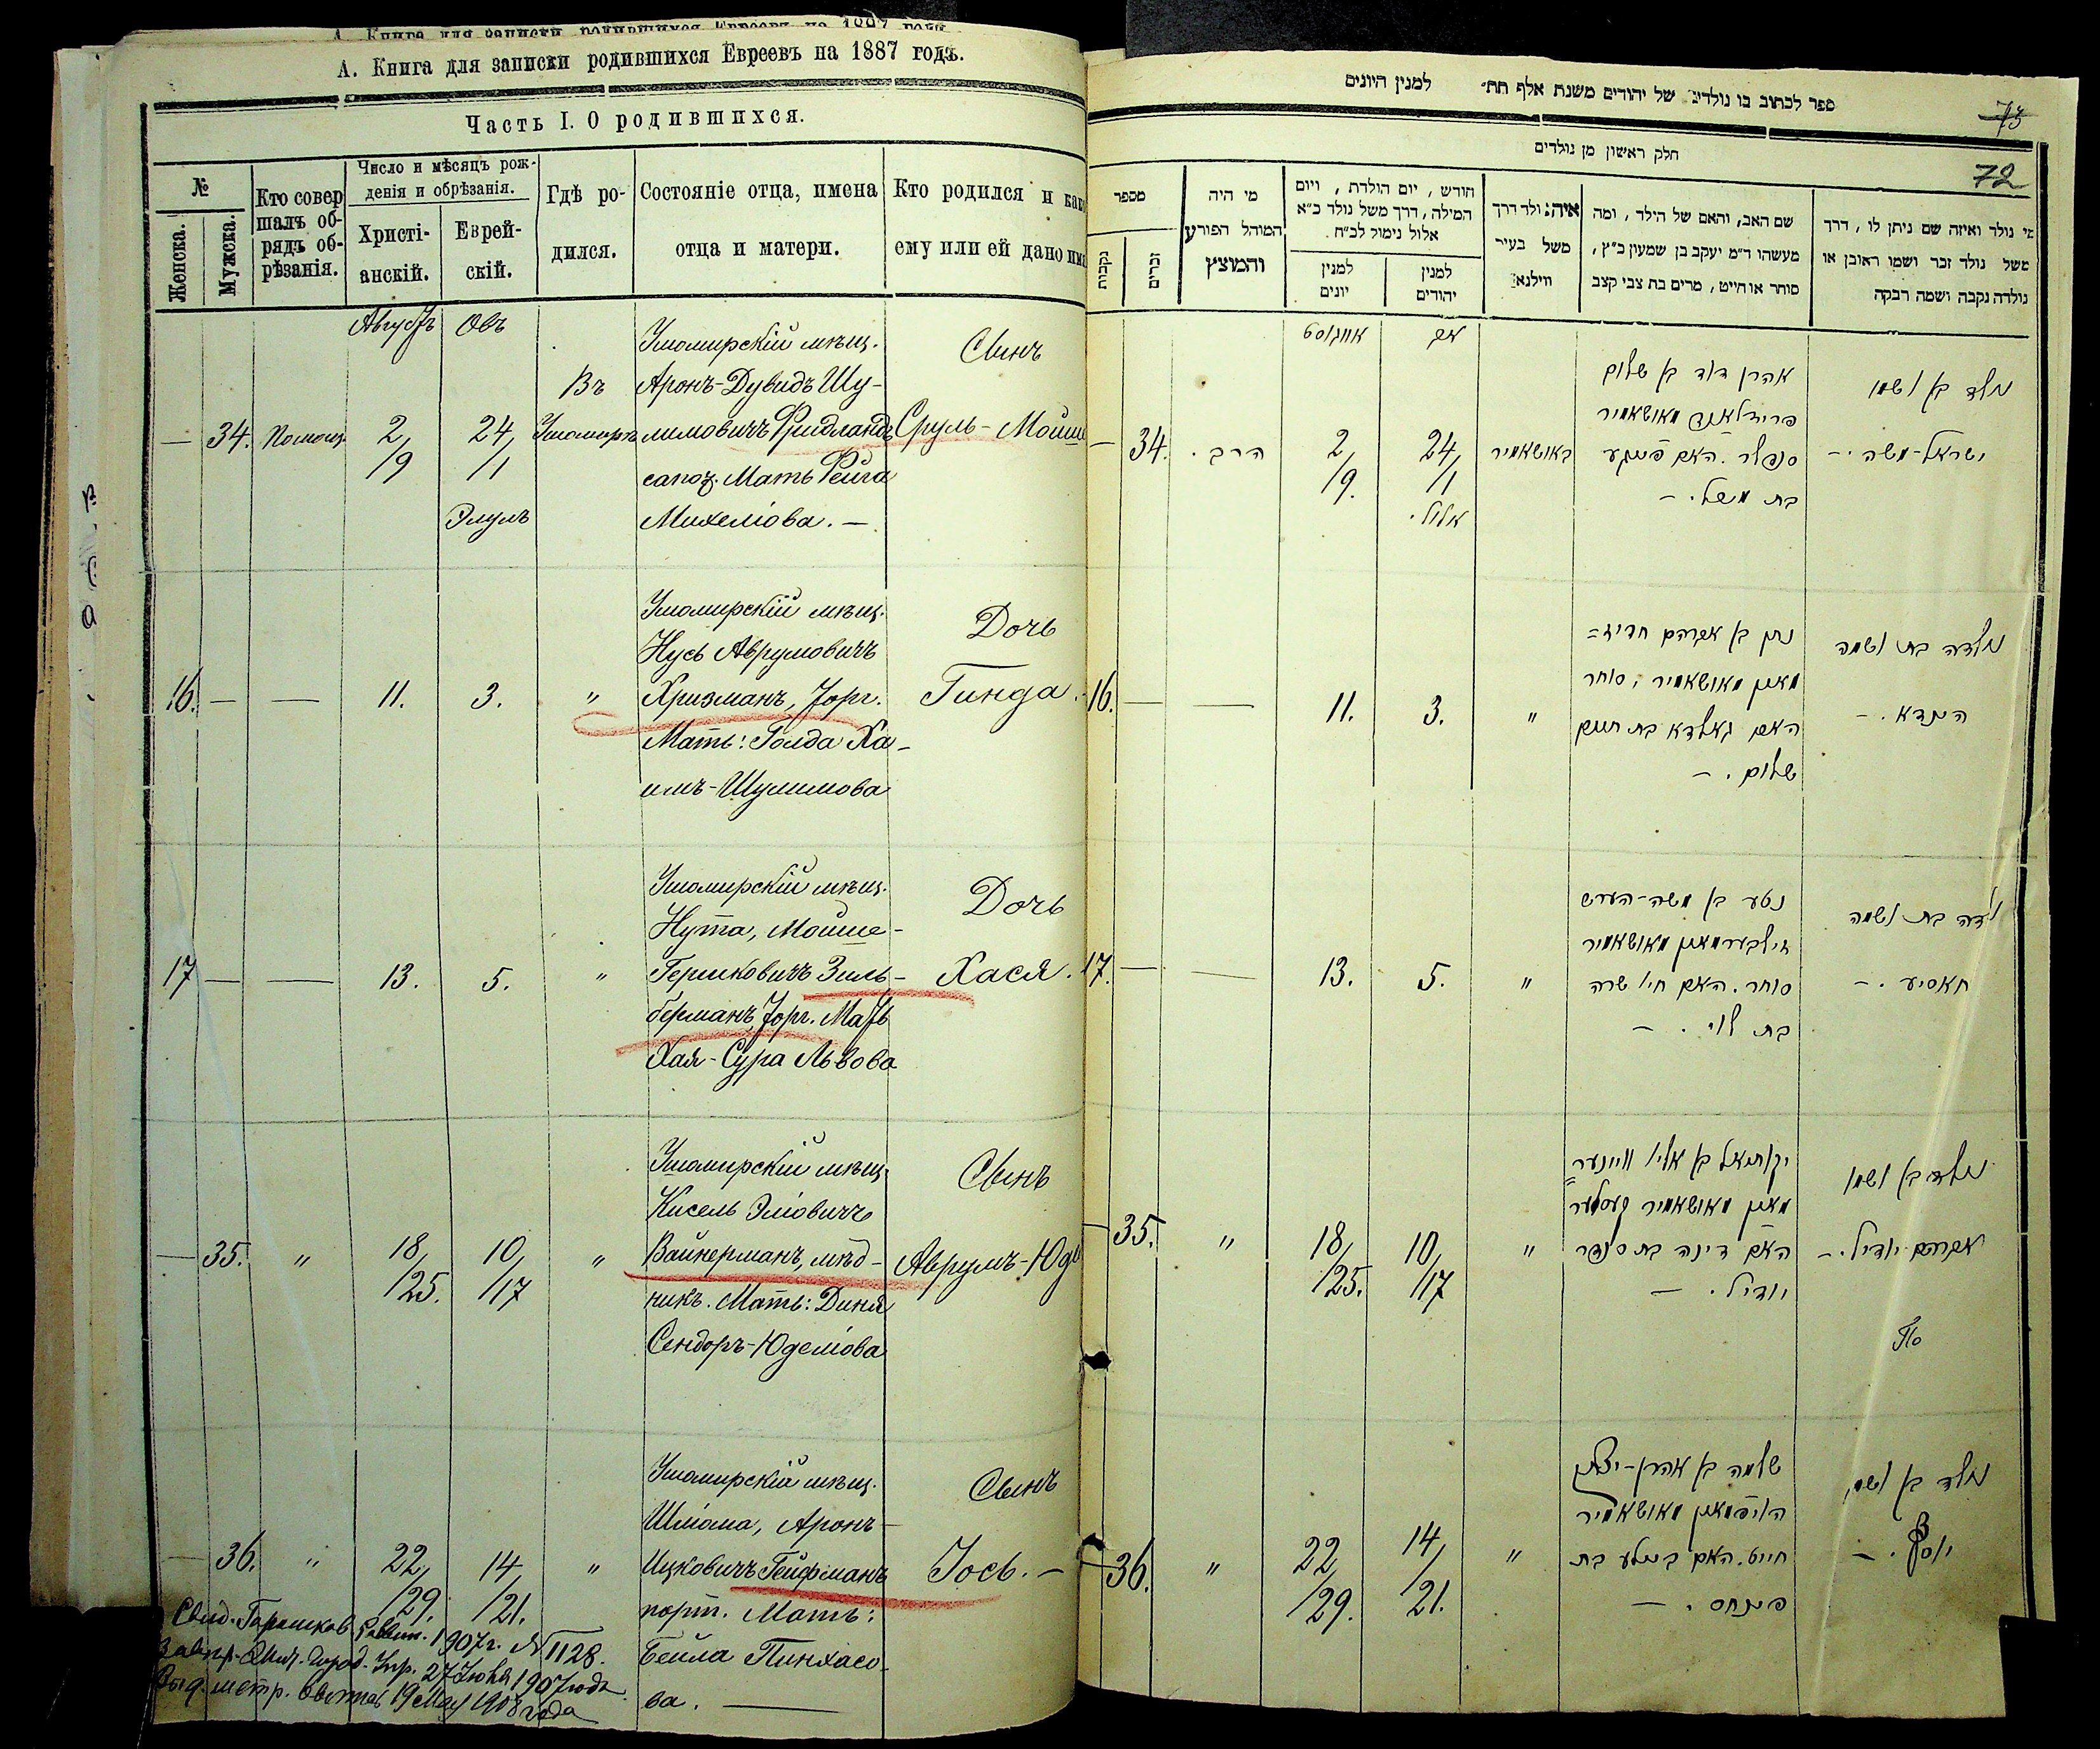 А. Книга для записки родившихся Евреевъ на 1887 годъ.
Часть I. О родившихся.
№
Женска.
Мужска.
Кто совер
шалъ об-
рядъ об-
рѣзанія.
Число и мѣсяцъ рож-
денія и обрѣзанія.
Христі-
анскій.
Еврей-
скій.
Гдѣ ро-
дился.
Состояніе отца, имена
отца и матери.
Кто родился и како
ему или ей дано имя
Августъ
Овъ
—
34.
2/
/9
24/
/1
Элулъ
Въ
Ушомирѣ
Ушомирскій мѣщ.
Аронъ-Дувидъ Шу-
лимовичъ Фридландъ
сапож. Мать Рейза
Михеліова. —
Сынъ
Сруль-Мойше
16.
—
—
11.
3.
"
Ушомирскій мѣщ.
Нусь Аврумовичъ
Хризманъ, Торг.
Мать: Голда Ха-
имъ-Шулимова
Дочь
Гинда.
17
—
—
13.
5.
"
Ушомирскій мѣщ.
Нута, Мойше-
Гершковичъ Зиль-
берманъ, Торг. Мать
Хая-Сура Львова
Дочь
Хася.
—
35.
"
18/
/25.
10/
/17
"
Ушомирскій мѣщ.
Кисель Эліовичъ
Вайнерманъ, мѣд-
никъ. Мать: Диня
Сендоръ-Юделіова
Сынъ
Аврумъ-Юд
—
36.
"
22/
/29.
14/
/21.
"
Ушомирскій мѣщ.
Шліома, Аронъ-
Ицковичъ Гейфманъ
порт. Мать:
Бейла Пинхасо-
ва. —
Сынъ
Іось. —
1907г. № 1128.
27 Іюня 1907 года
19 Мая 1908 года
ספר לכתוב בו נולדים של יהודים משנת אלף תת״ למנין היונים
73
72
חלק ראשון מן נולדים
מספר
נקבות
זכרים
מי היה
המוהל הפורע
והמוצץ
חודש, יום הולדת, ויום
המילה, דרך משל נולד כ״א
אלול נימול לכ״ח
למנין
יונים
למנין
יהודים
איה נולד דרך
משל בעיר
ווילנא
שם האב, והאם של הילד, ומה
מעשהו ד״מ יעקב בן שמעון כ״ץ,
סוחר או חייט, מרים בת צבי קצב
מי נולד ואיזה שם ניתן לו, דרך
משל נולד זכר ושמו ראובן או
נולדה נקבה ושמה רבקה
אויגוסט
אב
34.
הרב.
2/
/9.
24/
/1
אלול.
באושאמיר
אהרן דוד בן שלום
פרידלאנד מאושאמיר
סנדלר. האם פייגע
בת מיכל. –
נולד בן ושמו
ישראל-משה. –
16.
—
—
11.
3.
"
נתן בן אברהם חריז=
מאן מאושאמיר, סוחר
האם גאלדא בת חיים
שלום. –
נולדה בת ושמה
הינדא. –
17.
—
—
13.
5.
"
נטע בן משה-הערש
זילבערמאן מאושאמיר
סוחר. האם חי׳ שרה
בת לוי. –
נולדה בת ושמה
חאסיע. –
—
35.
"
18/
/25.
10/
/17
"
יקותיאל בן אלי׳ וויינער
מאן מאושאמיר קעסלער
האם דינה בת סנדר
יודיל. –
נולד בן ושמו
אברהם יודיל. –
—
36.
"
22/
/29.
14/
/21.
"
שלמה בן אהרן-יצחק
הויפמאן מאושאמיר
חייט. האם ביילע בת
פינחס. –
נולד בן ושמו
יוסף. –